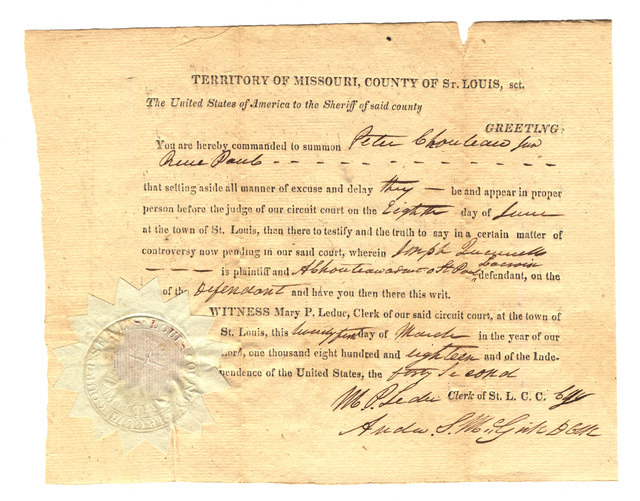 TERRITORY OF MISSOURI, COUNTY OF St. LOUIS, sct.
The United States of America to the Sheriff of said county
GREETING:
You are hereby commanded to summon Peter Chouteau Jun
Rene Paul
that setting aside all manner of excuse and delay they — be and appear in proper
person before the judge of our circuit court on the Eighth day of June
at the town of St. Louis, then there to testify and the truth to say in a certain matter of
controversy now pending in our said court, wherein Joseph
is plaintiff and defendant, on the
of the Defendant and have you then there this writ.
WITNESS Mary P. Leduc, Clerk of our said circuit court, at the town of
St. Louis, this day of March in the year of our
ord, one thousand eight hundred and eighteen and of the Inde-
pendence of the United States, the forty Second
M P Leduc Clerk of St. L. C. C.
By